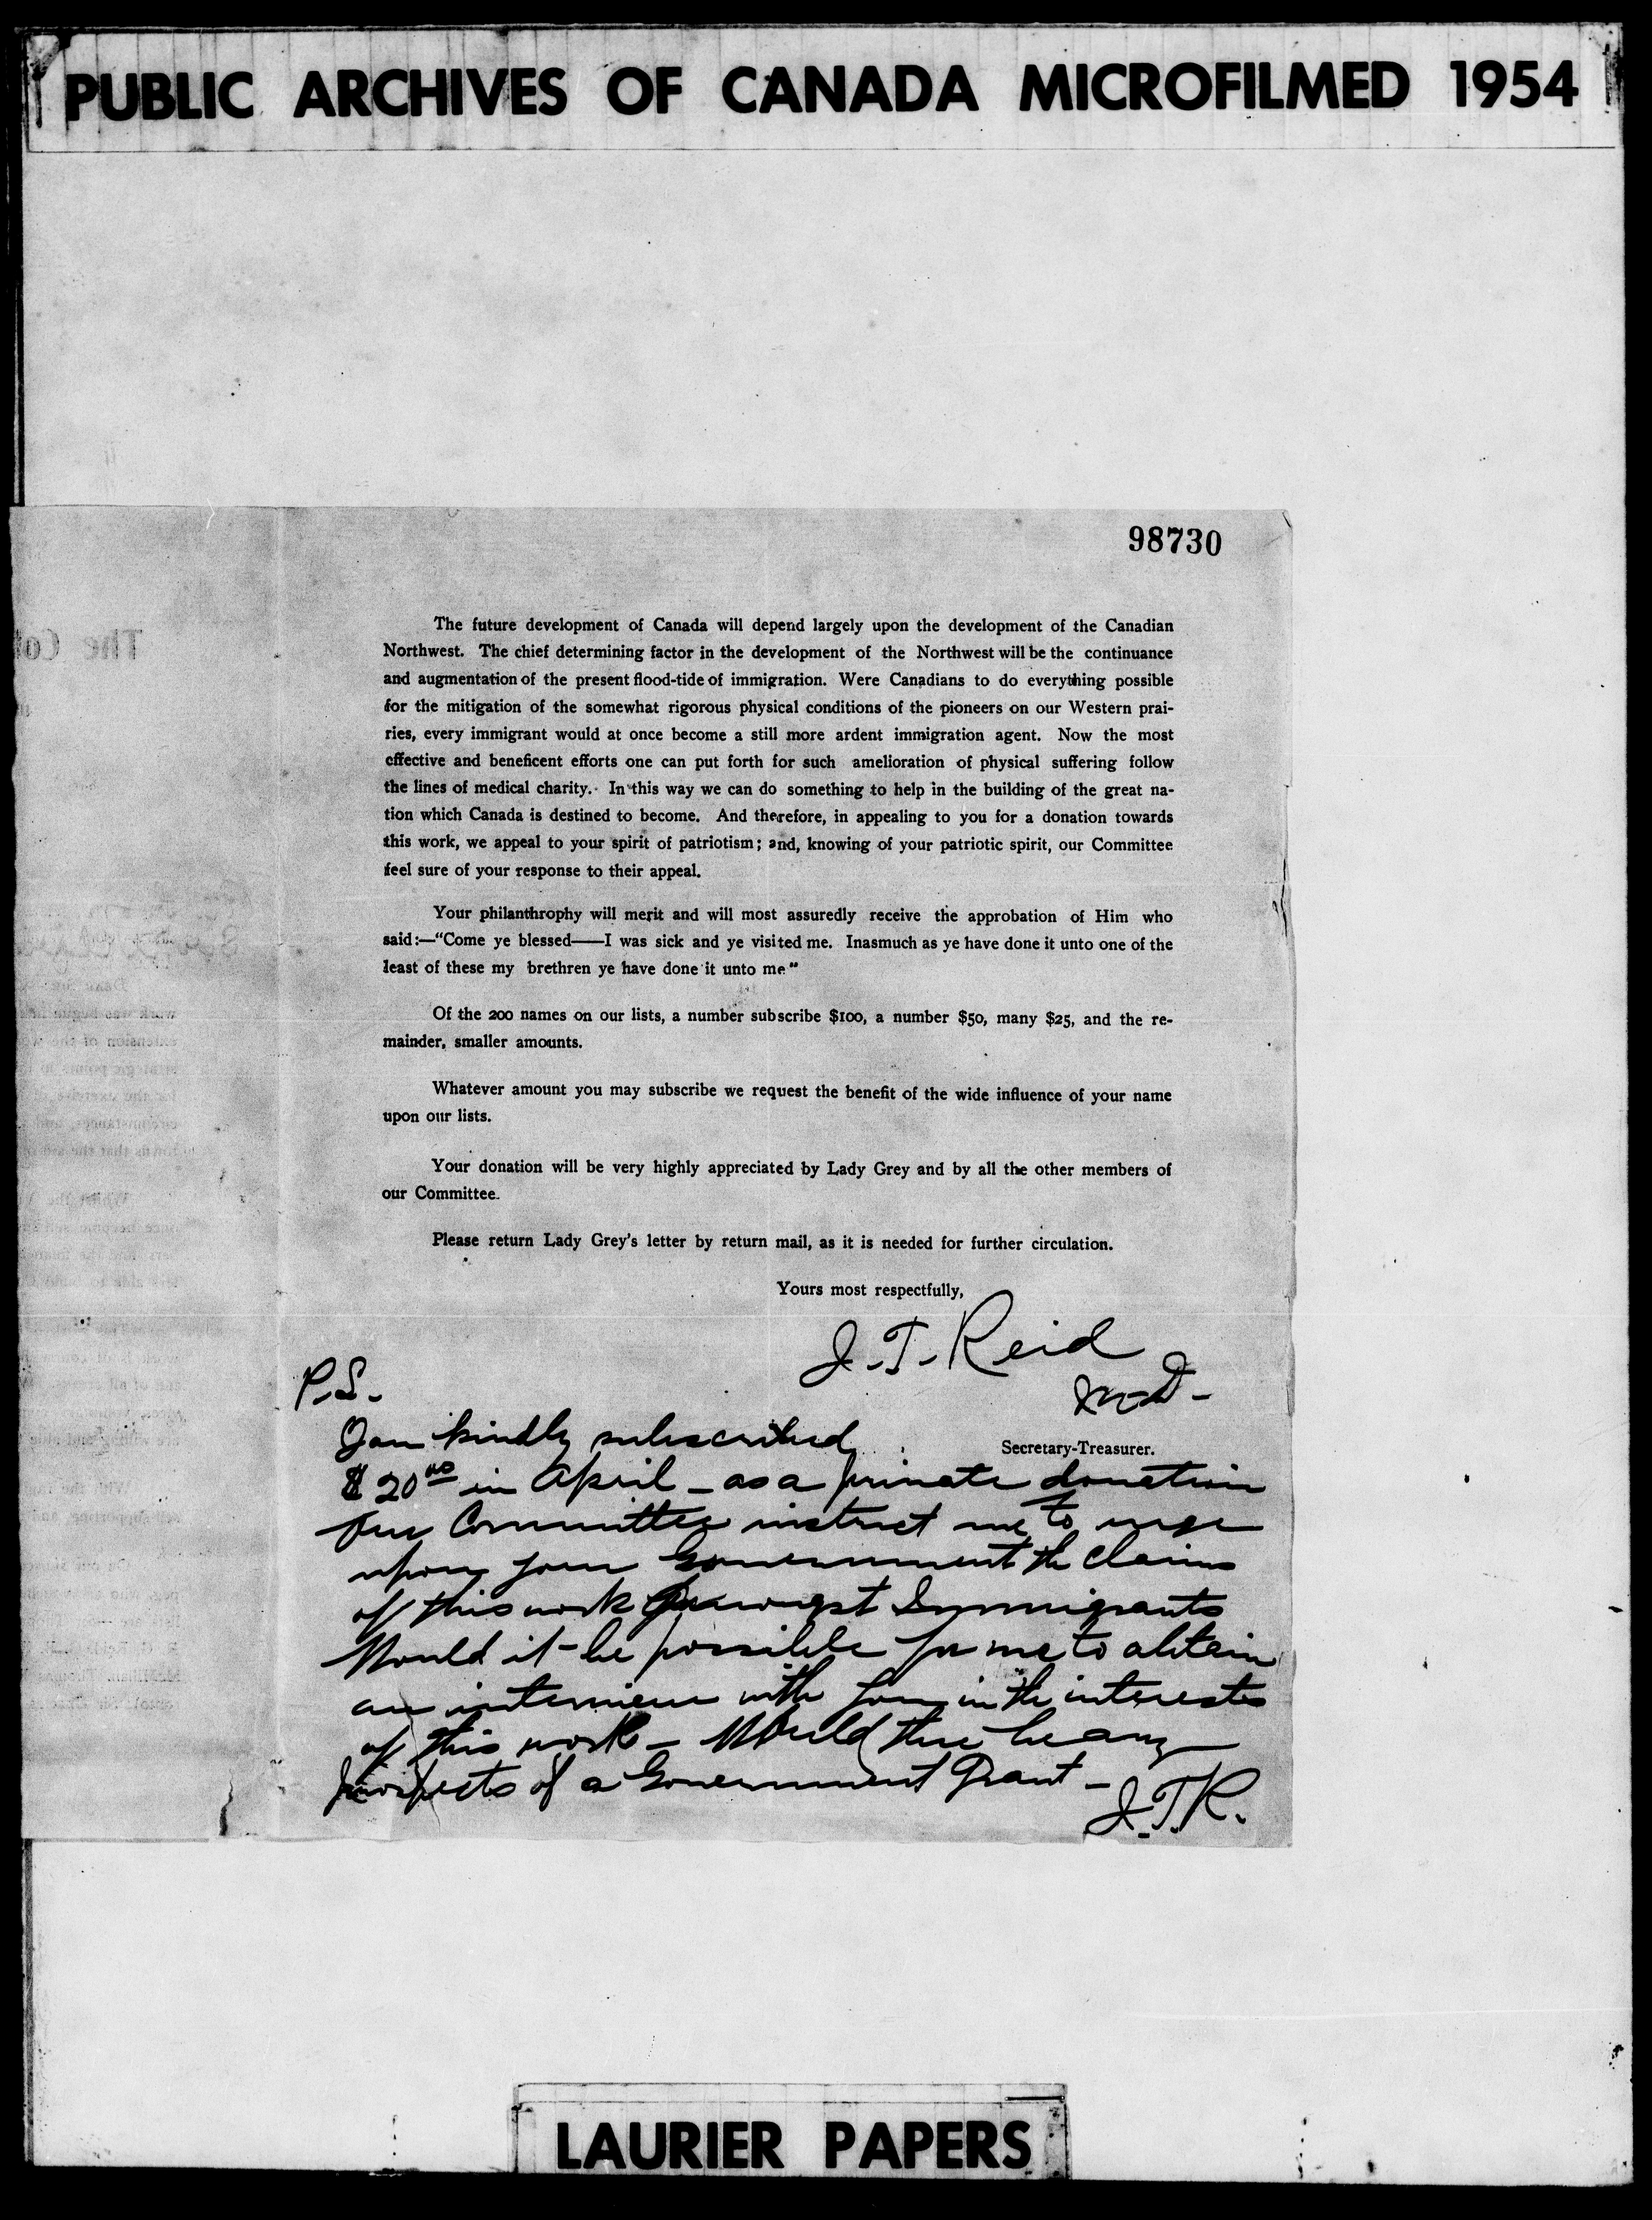 PUBLIC ARCHIVES OF CANADA MICROFILMED 1954
98730
The future development of Canada will depend largely upon the development of the Canadian
Northwest. The chief determining factor in the development of the Northwest will be the continuance
and augmentation of the present flood-tide of immigration. Were Canadians to do everything possible
for the mitigation of the somewhat rigorous physical conditions of the pioneers on our Western prai-
ries, every immigrant would at once become a still more ardent immigration agent. Now the most
effective and beneficent efforts one can put forth for such amelioration of physical suffering follow
the lines of medical charity. In this way we can do something to help in the building of the great na-
tion which Canada is destined to become. And therefore, in appealing to you for a donation towards
this work, we appeal to your spirit of patriotism; and, knowing of your patriotic spirit, our Committee
feel sure of your response to their appeal.
Your philanthrophy will merit and will most assuredly receive the approbation of Him who
said:—"Come ye blessed——I was sick and ye visited me. Inasmuch as ye have done it unto one of the
least of these my brethren ye have done it unto me"
Of the 200 names on our lists, a number subscribe $100, a number $50, many $25, and the re-
mainder, smaller amounts.
Whatever amount you may subscribe we request the benefit of the wide influence of your name
upon our lists.
Your donation will be very highly appreciated by Lady Grey and by all the other members of
our Committee.
Please return Lady Grey's letter by return mail, as it is needed for further circulation.
Yours most respectfully,
J. T. Reid
M.D.
Secretary-Treasurer.
P.S.
You kindly subscribed
$20 00 in April – as a private donation
Our Committee instruct me to urge
upon your Government the claims
of this work amongst Immigrants
Would it be possible for me to obtain
an interview with you in the interests
of this work – Would there be any
prospects of a Government Grant –
J.T.R.
The Co
LAURIER PAPERS